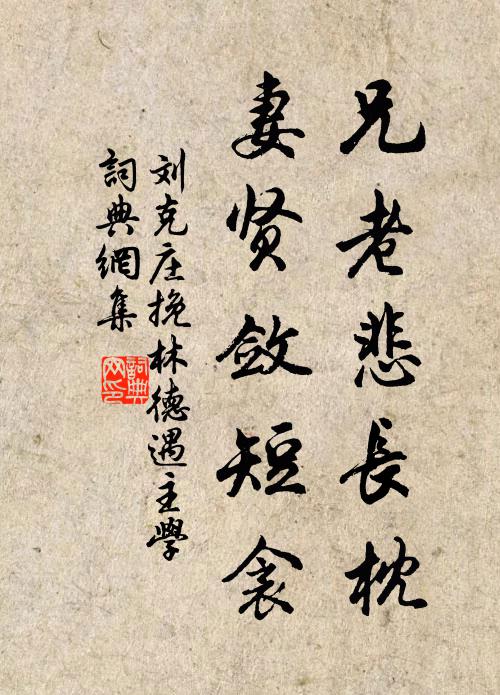 兄老悲長枕
妻贤斂短衾
刘克庄挽林德遇主學
詞典網集
詞典网印